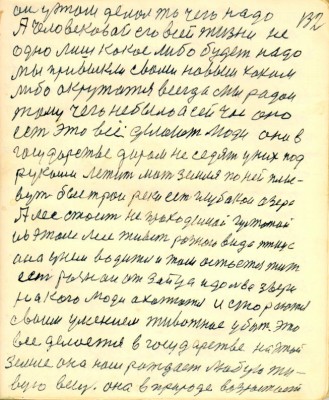 он у том делоя то чего надо
132
А человеков его всей жизни не
одно лиш какое либо будет надо
мы привыкли своим новым каким
либо окружатся всегда мы ради
тому чего небыло а сей час оно
ест это всё делают люди они в
государстве даром не седят у них под
руками летит мать земля по ней плы-
вут быстрои реки ест глубокои озера
А лес стоит не проходимой густотой
в этом лесе живёт разного вида птиц
она у ней водится и там остаётся жит
ест разнои от зайца и до льва звери
на кого люди охотятся и стораются
своим умением животное убит это
все делоется в государстве на этой
земле она нам рождает любую жи-
вую вещ. она в природе возростает